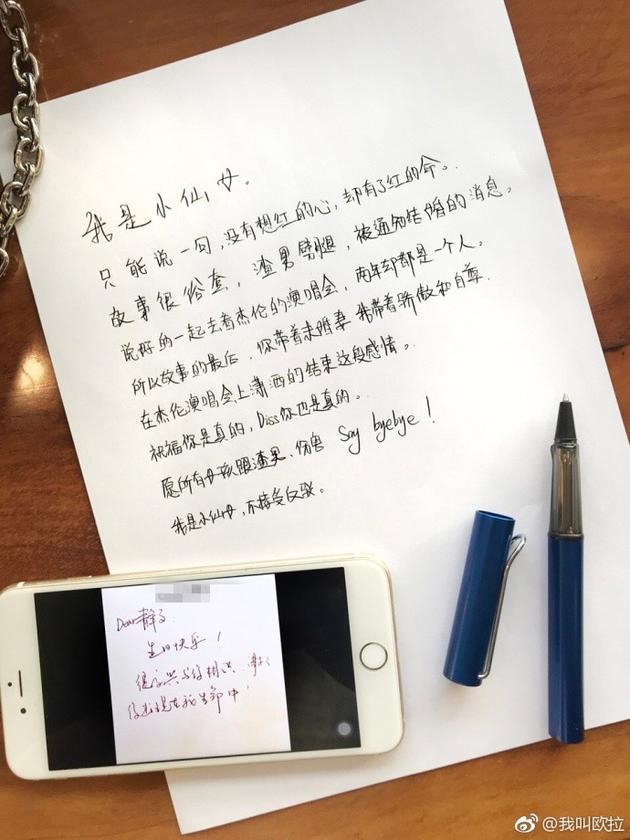 我是小仙女。
只能说一句，没有想红的心，却有了红的命。
故事很俗套，渣男劈腿，被通知结婚的消息。
说好的一起去看杰伦的演唱会，两年却都是一个人。
所以故事的最后，你带着未婚妻 我带着骄傲和自尊.
在杰伦演唱会上潇洒的结束这段感情。
祝福你是真的，Diss你也是真的。
愿所有女孩跟渣男、伤害 Say byebye！
我是小仙女，不接受反驳。
Dear静子
生日快乐！
很高兴与你相识.
你出现在我生命中！
@我叫欧拉